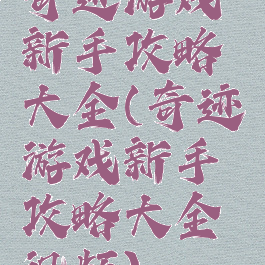 奇迹游戏
新手攻略
大全(奇迹
游戏新手
攻略大全
视频)